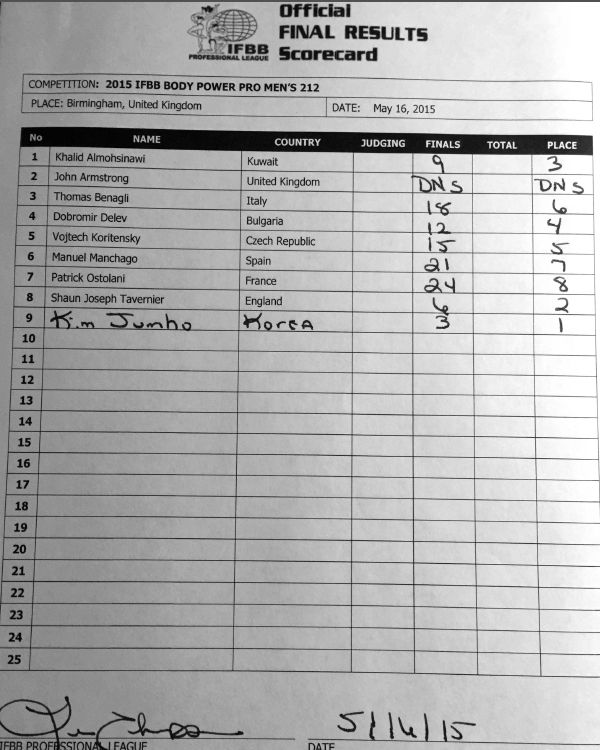 Official
FINAL RESULTS
Scorecard
IFBB
PROFESSIONAL LEAGUE
COMPETITION: 2015 IFBB BODY POWER PRO MEN'S 212
PLACE: Birmingham, United Kingdom DATE: May 16, 2015
No NAME COUNTRY JUDGING FINALS TOTAL PLACE
1 Khalid Almohsinawi Kuwait 9 3
2 John Armstrong United Kingdom DNS DNS
3 Thomas Benagli Italy 18 6
4 Dobromir Delev Bulgaria 12 4
5 Vojtech Koritensky Czech Republic 15 5
6 Manuel Manchago Spain 21 7
7 Patrick Ostolani France 24 8
8 Shaun Joseph Tavernier England 6 2
9 Kim Junho Korea 3 1
10
11
12
13
14
15
16
17
18
19
20
21
22
23
24
25
5/16/15
IFBB PROFESSIONAL LEAGUE DATE